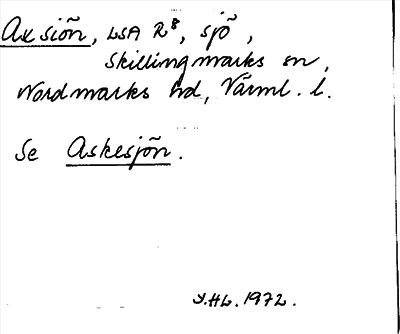 Axsiön, LSA R8, sjö,
Skillingmarks sn,
Nordmarks hd, Värml. l.
Se Askesjön.
Y.HL. 1972.